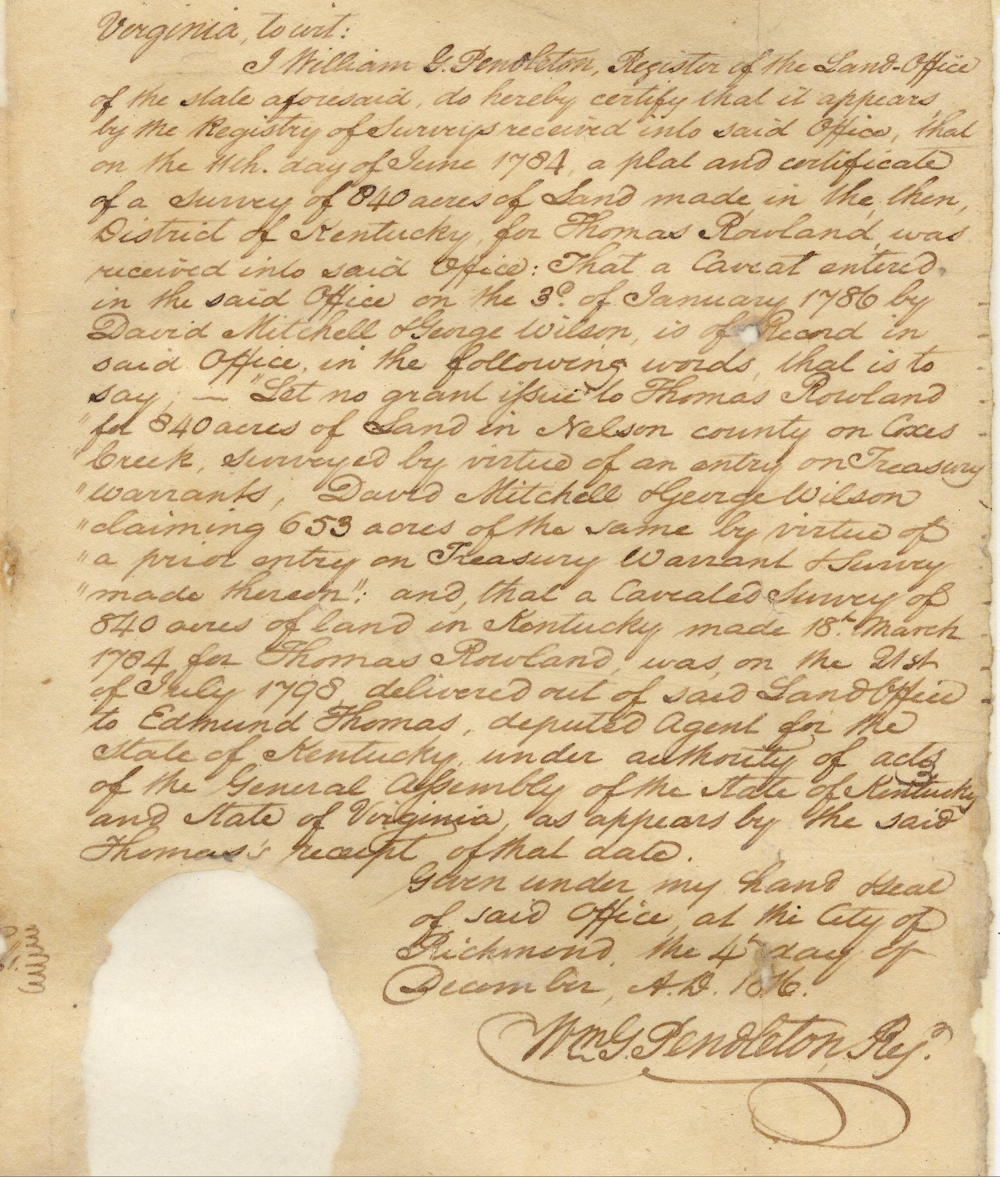 Virginia, to wit:
I William G. Pendleton, Register of the Land-Office
of the state aforesaid, do hereby certify that it appears
by the Registry of Surveys received into said Office, that
on the 11th. day of June 1784, a plat and certificate
of a Survey of 840 acres of Land made in the then
District of Kentucky, for Thomas Rowland, was
received into said Office: That a Caveat entered
in the said Office on the 3d. of January 1786 by
David Mitchell & George Wilson, is of Record in
said Office, in the following words, that is to
say; — "Let no grant issue to Thomas Rowland
"for 840 acres of Land in Nelson county on Coxes
"Creek, surveyed by virtue of an entry on Treasury
"warrants, David Mitchell & George Wilson
"claiming 653 acres of the same by virtue of
"a prior entry on Treasury Warrant & Survey
"made thereon": and, that a Caveated Survey of
840 acres of land in Kentucky made 18th March
1784 for Thomas Rowland, was, on the 21st
of July 1798, delivered out of said Land Office
to Edmund Thomas, deputed Agent for the
State of Kentucky, under authority of acts
of the General Assembly of the State of Kentucky
and State of Virginia, as appears by the said
Thomas's receipt of that date.
Given under my hand & seal
of said Office, at the City of
Richmond, the 4th day of
December, A.D. 1816.
Wm. G. Pendleton, Reg.r